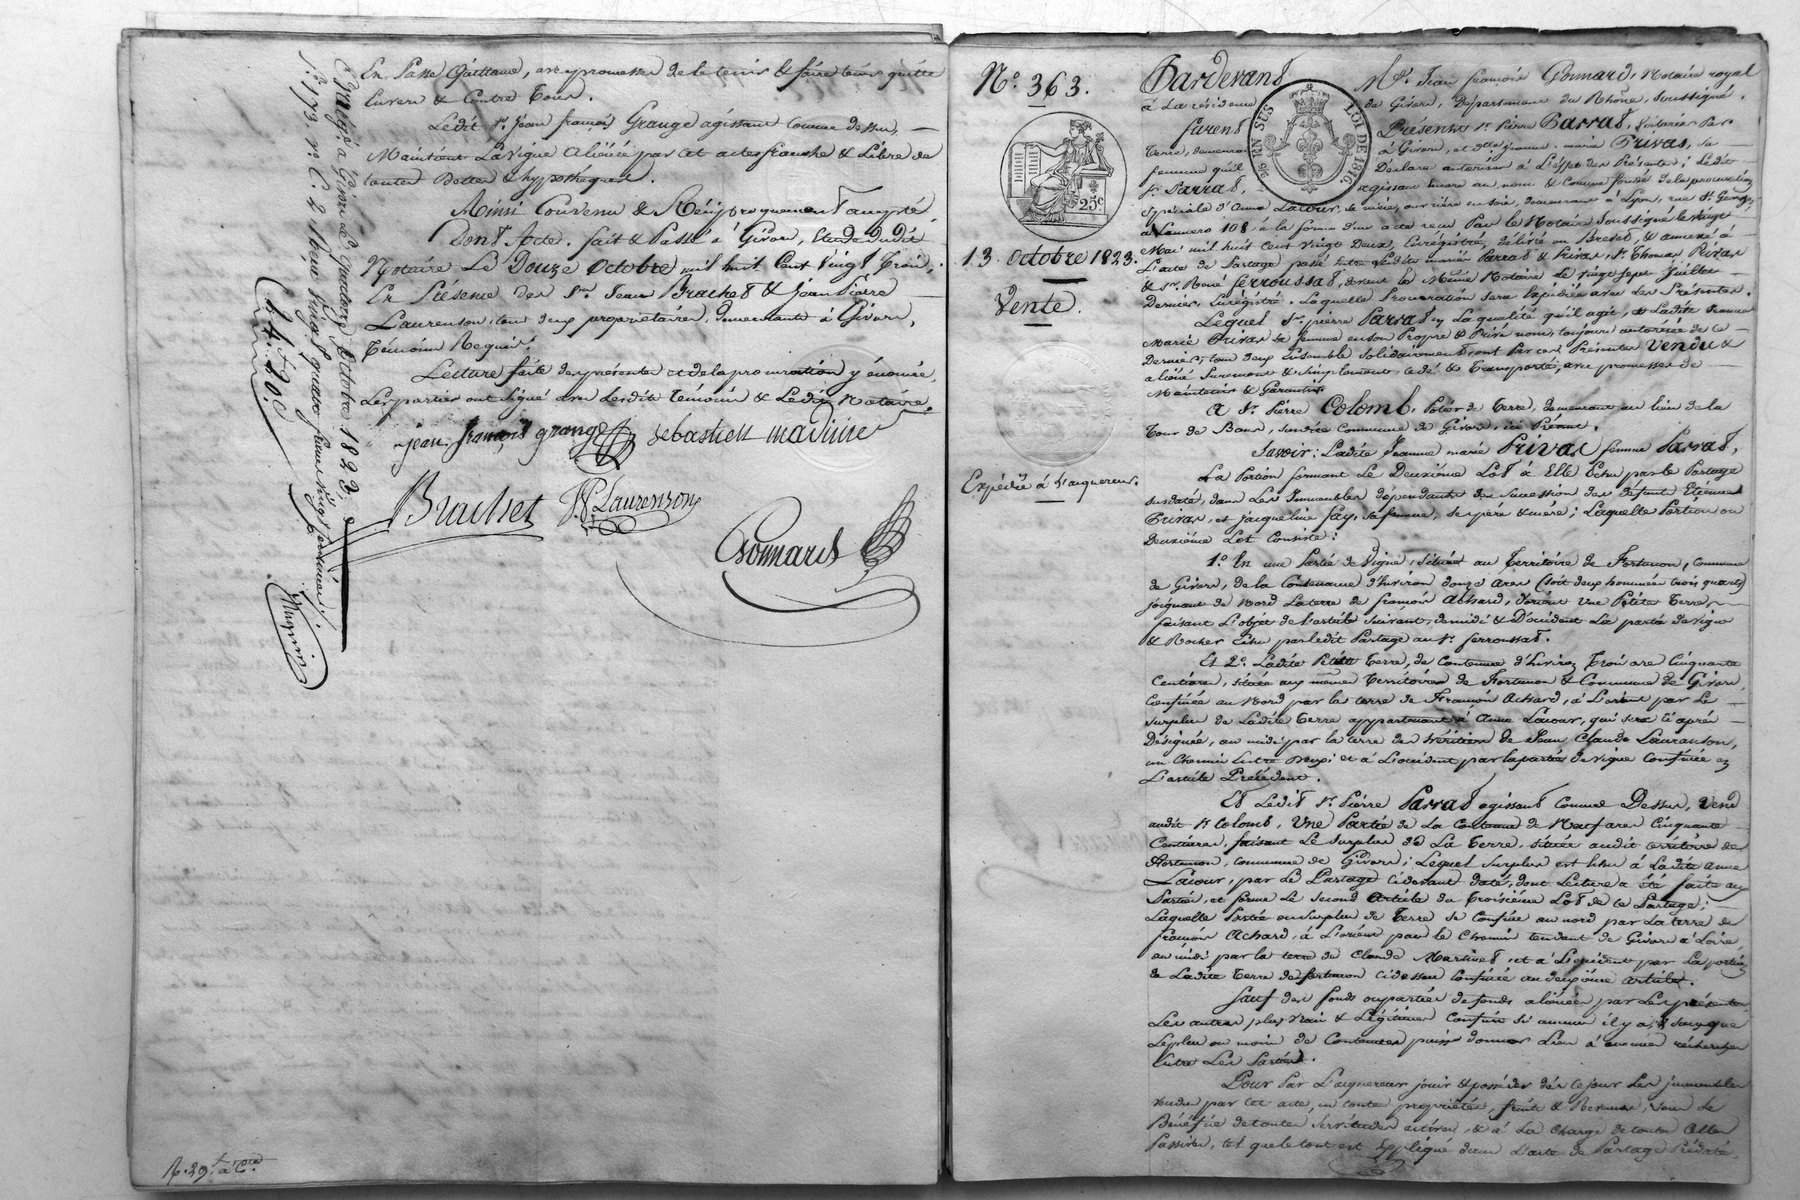 En Passe Quittance, avec promesse de le tenir & faire tenir quitte
Envers & Contre Tous.
Ledit Sr. Jean françois Grange agissant comme dessus,
Maintient La Vigne aliénée par cet acte franche & Libre de
toutes Dettes & hypothèques.
Ainsi Convenu & Réciproquement accepté.
Dont Acte. fait & Passé à Givors, Etude dudit
Notaire Le Douze Octobre mil huit Cent Vingt Trois,
En Présence des Srs. Jean Brachet & Jean Pierre
Laurenson, tous deux propriétaires, demeurants à Givors,
Témoins Requis.
Lecture faite des présentes et de la procuration y énoncée,
Les parties ont signé avec lesdits Témoins & Ledit Notaire.
jean françois grange sebastien
Brachet JP Laurenson
Gonnard
Enregistré à Givors le quatorze Octobre 1823,
N° 363.
25c
13 octobre 1823.
Vente.
Expédiée à l'acquéreur.
Pardevant Me. Jean françois Gonnard, Notaire royal
à La résidence de Givors, Département du Rhône, soussigné.
furent Présents Sr. Pierre Parrat,
SUS LOI DE 1816.
terre, à Givors, et Marie Privas, sa
femme qu'il Déclare autoriser à L'effet des Présentes; Ledit
Sr. Parrat, agissant encore au nom & Comme fondé de la procuration
Spéciale d'Anne Lacour, demeurant à Lyon, rue St. Georges,
a Numéro 108, à la forme d'un acte reçu Par le Notaire soussigné le vingt
Mai mil huit Cent Vingt Deux, Enregistré, délivré en Brevet, & annexé à
L'acte de Partage passé entre Lesdits mariés Parrat & Privas, Sr. Thomas Privas
& Sr. René ferroussat, devant le Même Notaire le vingt sept Juillet
Dernier, Enregistré. Laquelle Procuration sera Expédiée avec les Présentes.
Lequel Sr. pierre Parrat en La qualité qu'il agit, & Ladite Jeanne
Marie Privas sa femme en son Propre & Privé nom, toujours autorisée de ce
Dernier, tous deux Ensemble solidairement ont Par ces Présentes Vendu &
aliéné Purement & simplement, cédé & Transporté, avec promesses de
Maintenir & Garantir
A Sr. Pierre Colomb, Potier de Terre, demeurant au lieu de la
Tour de Bans, susdite Commune de Givors, ici Présent.
Savoir: Ladite Jeanne marie Privas femme Parrat,
La Portion formant Le Deuxième Lot à Elle Echu par le Partage
susdaté, dans Les Immeubles dépendants des succession des défunts Etienne
Privas, et jacqueline fay, sa femme, ses père & mère; Laquelle Portion ou
Deuxième Lot Consiste:
1°. En une Partie de Vigne, située au Territoire de Fortunon, Commune
de Givors, de la Contenance d'Environ douze Ares (soit deux hommées trois quarts)
joignant de Nord La terre de françois Achard, d'orient Une Petite Terre
faisant L'objet de l'article suivant, de midi & d'Occident La partie de vigne
& Rocher Echu par ledit Partage au Sr. ferroussat.
Et 2°. Ladite Petite Terre, de Contenue d'Environ Trois ares Cinquante
Centiares, située aux mêmes Territoire de Fortunon & Commune de Givors,
Confinée au Nord par la terre de François Achard, à L'orient par Le
Surplus de Ladite Terre appartenant à Anne Lacour, qui sera ci après
Désignée, au midi par la terre des héritiers de Jean Claude Lauranson,
un Chemin Entre Deux; et à L'occident par la partie de vigne Confinée en
L'article Précédent.
Et Ledit Sr. Pierre Parrat agissant comme Dessus, Vend
audit Sr. Colomb, Une Partie de La Contenue de Neuf ares Cinquante
Centiares, faisant Le Surplus de La Terre, située audit territoire de
Fortunon, commune de Givors; Lequel surplus est échu à Ladite Anne
Lacour, par Le Partage cidevant daté, dont Lecture a été faite aux
Parties, et forme Le second Article du Troisième Lot de ce Partage;
Laquelle Partie ou Surplus de Terre se Confine au nord par La terre de
françois Achard, à L'orient par le Chemin tendant de Givors à Loire,
au midi par la terre de Claude Martinet, et à L'occident par La portion
de Ladite Terre de fortunon cidessus Confinée au deuxième article.
Sauf des fonds ou parties de fonds aliénées par Les présentes
Les autres plus vrais & Légitimes Confins si aucuns il y a, & sans que
Le plus ou moins de Contenues puisse donner Lieu à aucunes recherches
Entre Les Parties.
Pour Par L'acquéreur jouir & posséder dès ce jour Les immeubles
vendus par cet acte, en toutes propriétés, fruits & Revenus, sous Le
Bénéfice de toutes servitudes actives, & à La Charge de toutes Celles
Passives, tel que le tout est Expliqué dans L'acte de Partage Prédaté,